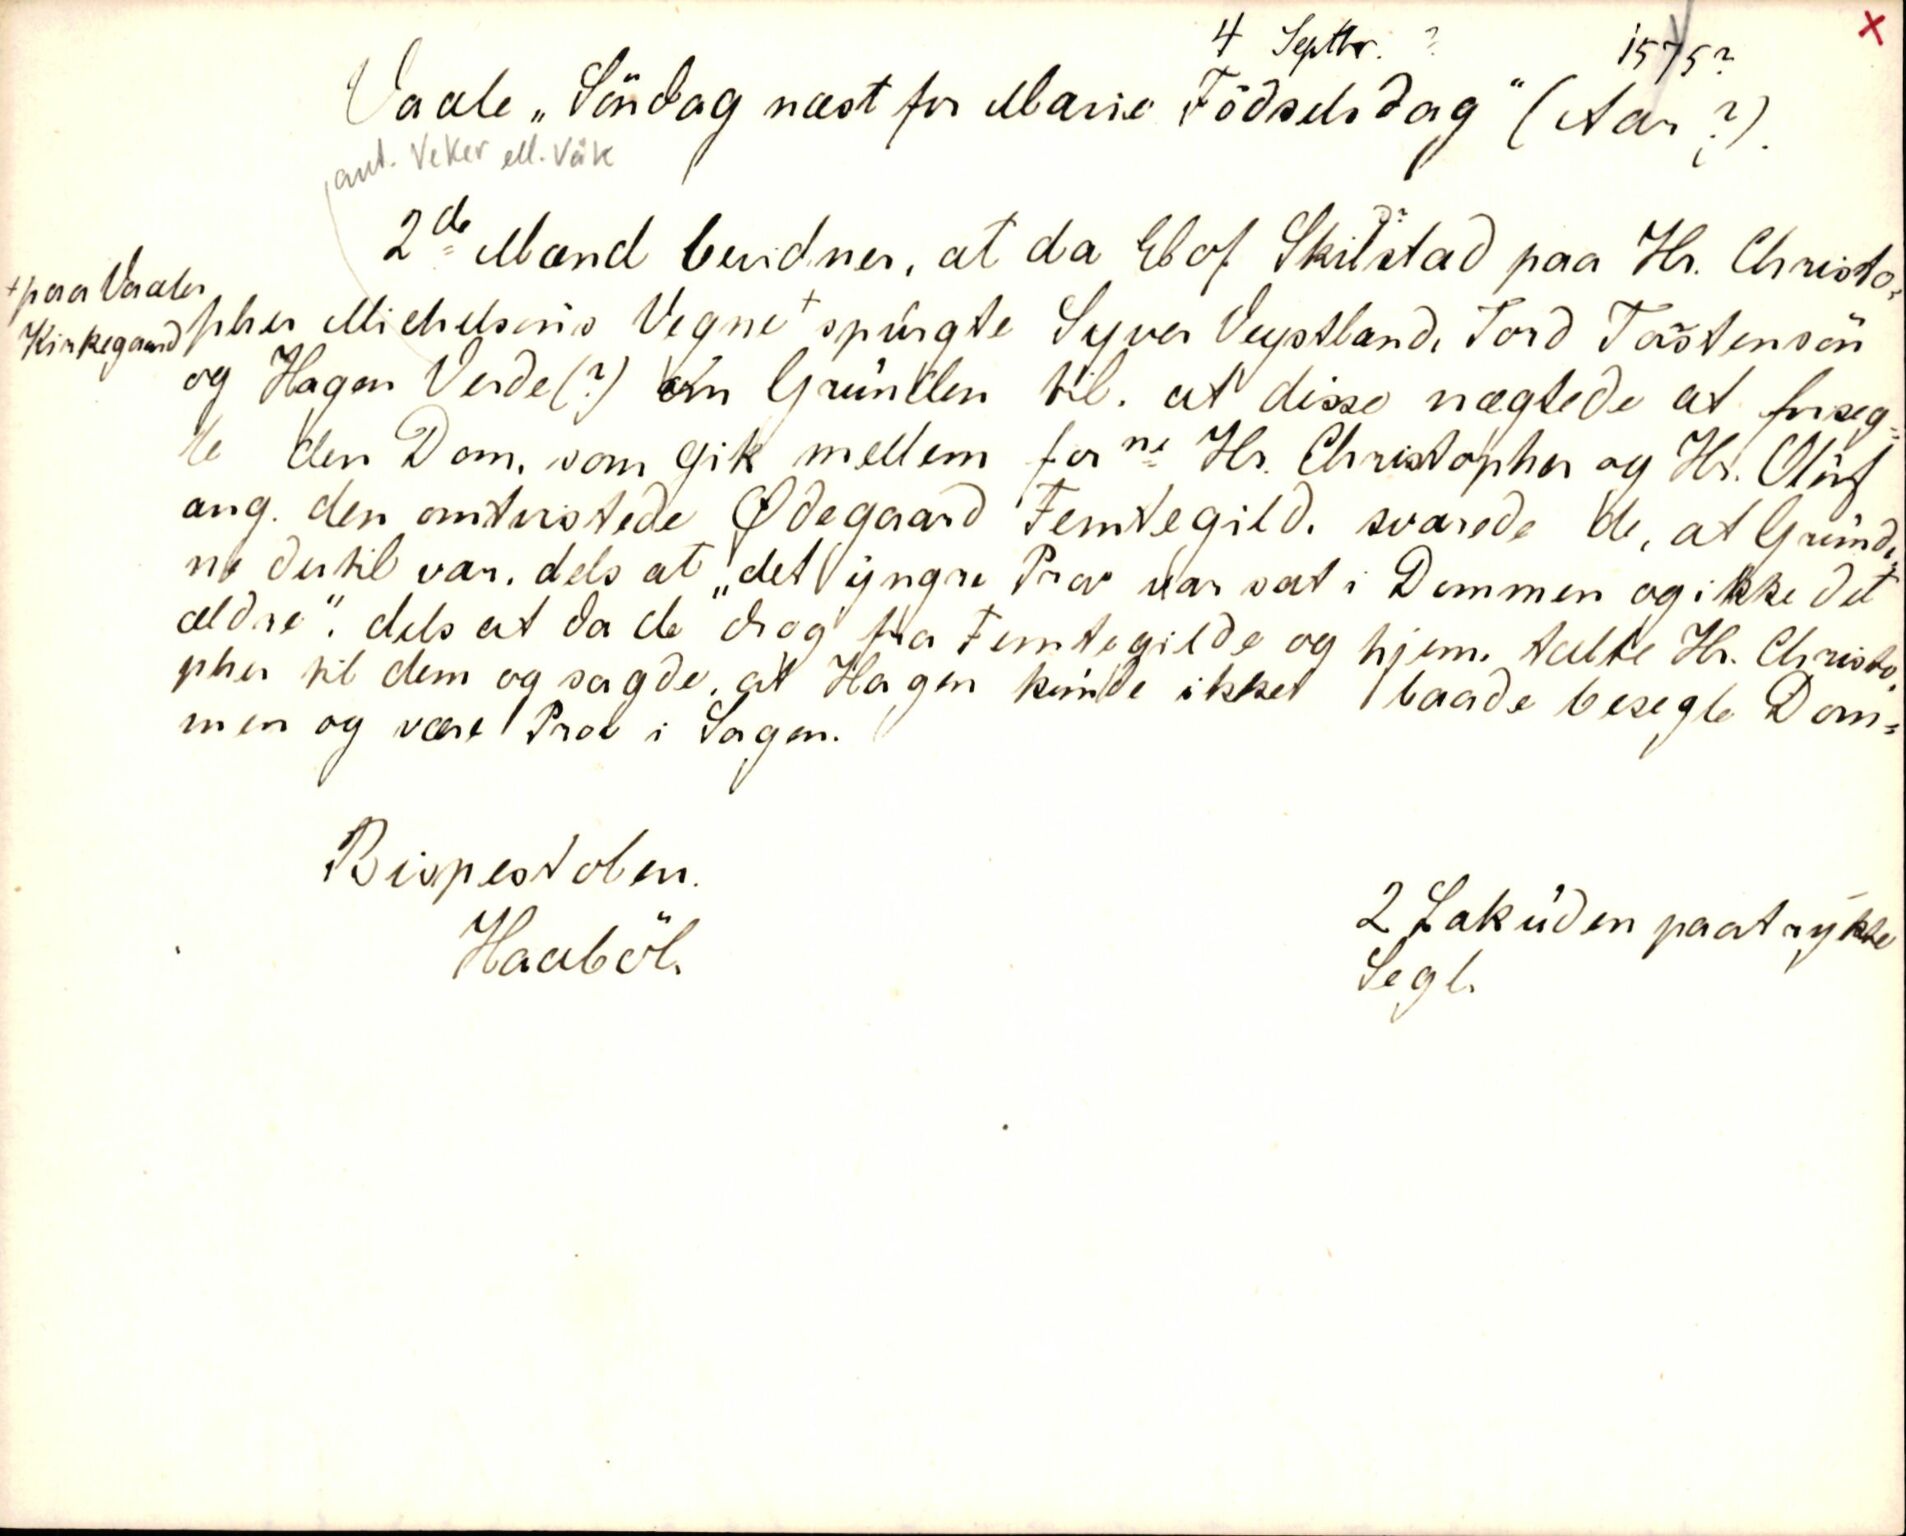 4 Septbr. ? 1575?
x
Vaale „Söndag næst for Marie Födselsdag" (Aar ?).
ant. Veker ell. Våk
2de Mænd bevidner, at da Elof Skilstad paa Hr. Christo-
+ paa Vaaler
Kirkegaard
pher Michelsöns Vegne + spurgte Syver Veystland, Tord Torstensön
og Hagen Verde(?) om Grunden til, at disse nægtede at forseg-
le den Dom, som gik mellem forne Hr. Christopher og Hr. Oluf
ang. den omtvistede Ødegaard Femtegild, svarede de, at Grunde-
ne dertil var, dels at „det yngre Prov var sat i Dommen og ikke det
ældre", dels at da de drog fra Femtegilde og hjem, talte Hr. Christo-
pher til dem og sagde, at Hagen kunde ikke baade besegle Dom-
men og være Prov i Sagen.
Bispestolen.
Haaböl.
2 Lakuden paatrykte
Segl.